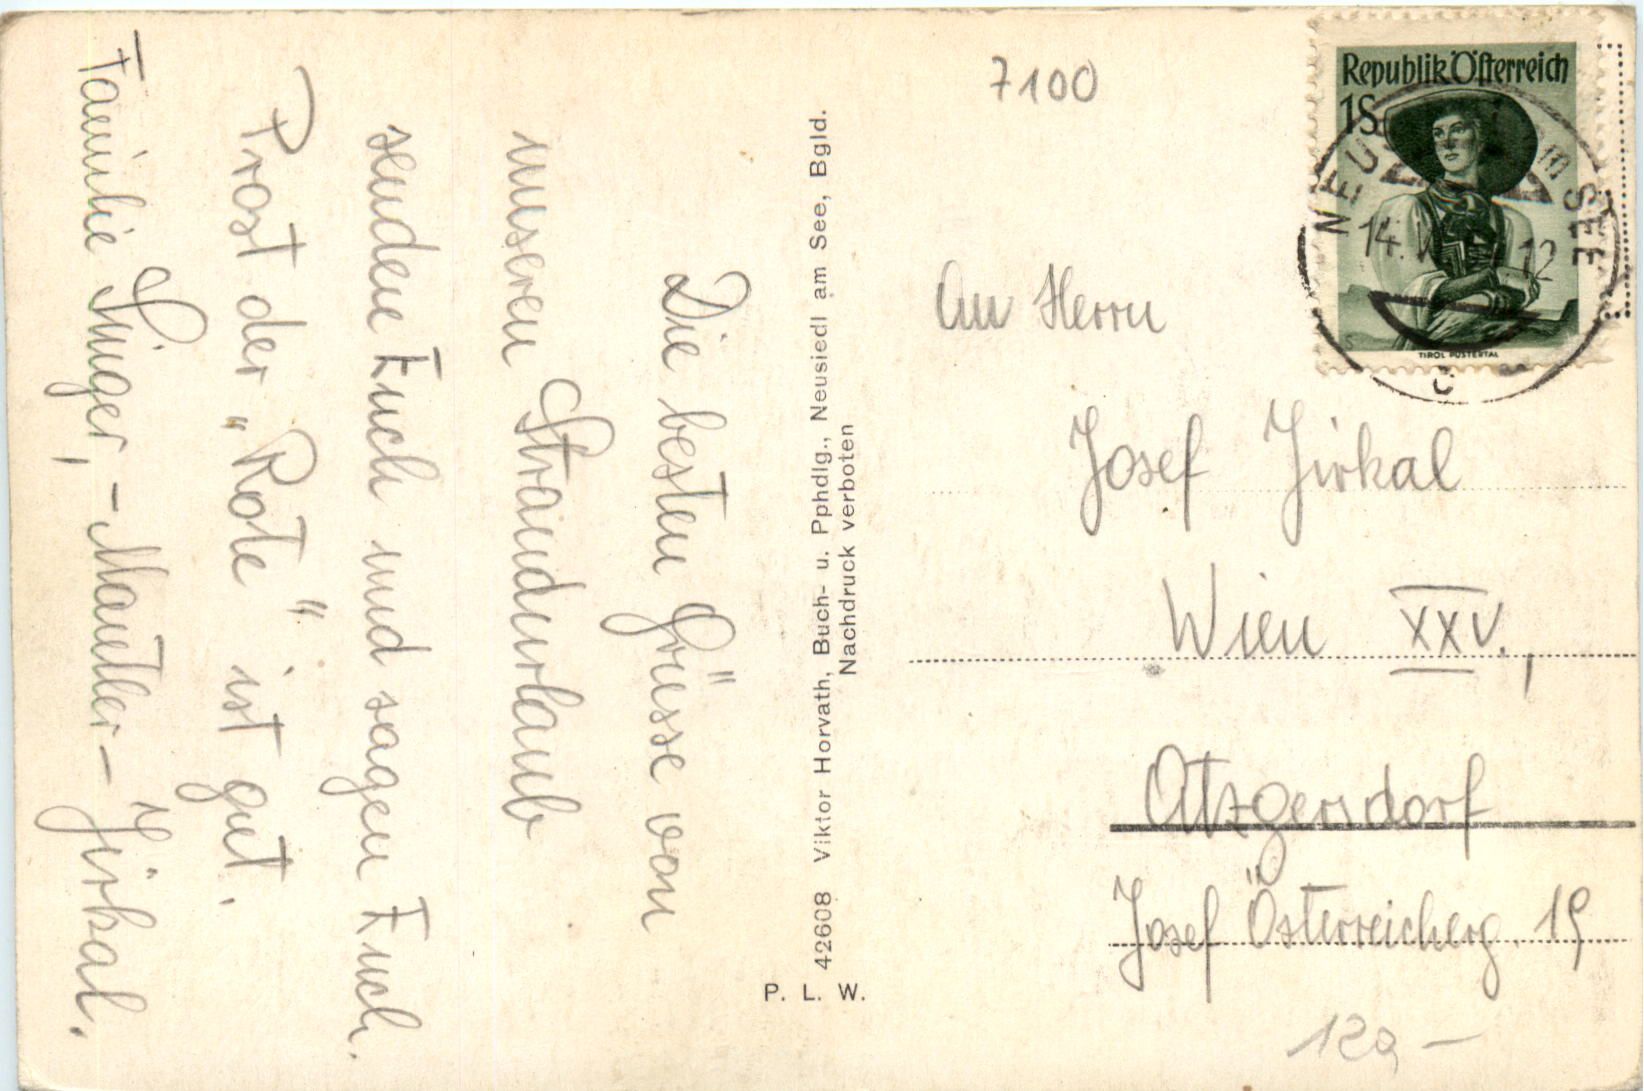 Die besten Grüsse von
unseren Strandurlaub
senden Euch und sagen Euch.
Prost der „Rote" ist gut.
Familie Singer, - Mantler - Jirkal.
42608 Viktor Horvath, Buch- u. Pphdlg., Neusiedl am See, Bgld.
Nachdruck verboten
P. L. W.
7100
Republik Österreich
1S
TIROL PUSTERTAL
NEUS AM SEE
14. V 12
An Herrn
Josef Jirkal
Wien XXV.,
Atzgersdorf
Josef Österreicherg. 19
129 -